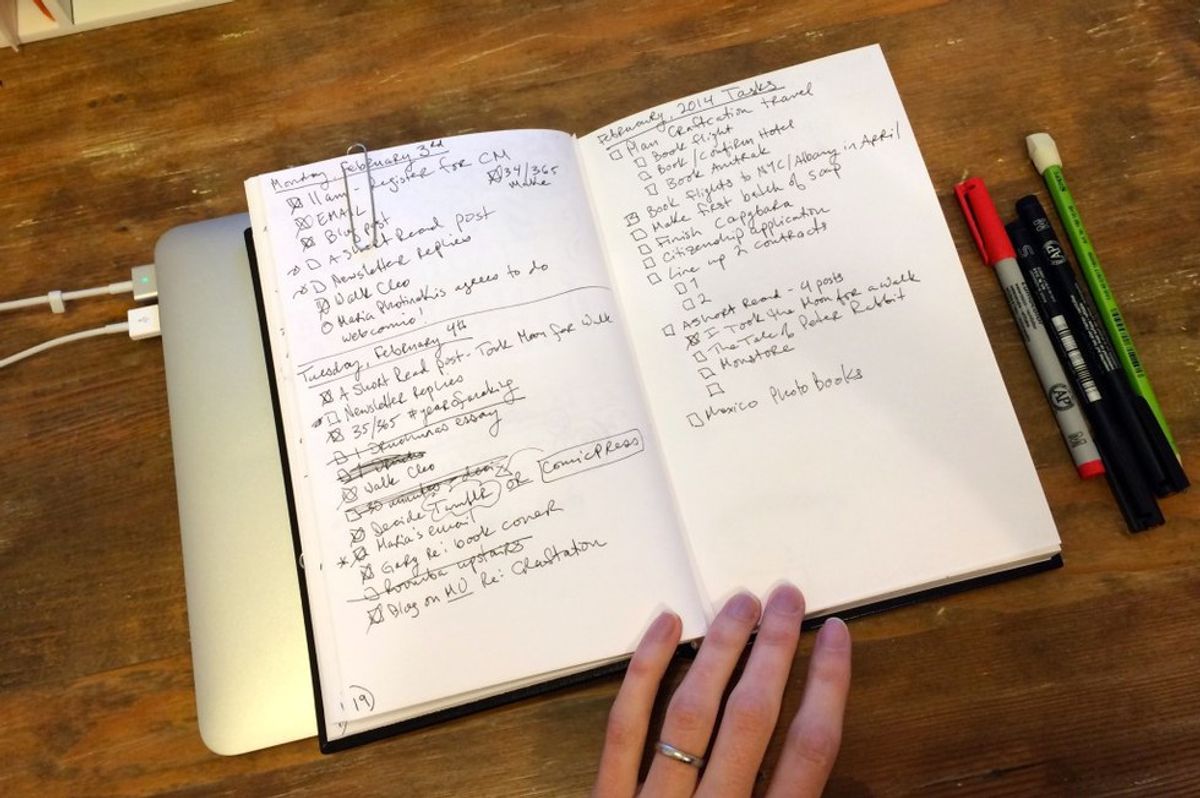 Monday, February 3rd
11am - Register for CM
34/365
Make
EMAIL
Blog Post
A Short Read post
Newsletter Replies
Walk Cleo
Maria agrees to do
webcomic!
Tuesday, February 4th
A Short Read post - Took Moon for Walk
Newsletter Replies
35/365 #yearofmaking
1 essay
1
Walk Cleo
30 minutes
Decide Tumblr OR ComicPress
Maria's email
Gary Re: book cover
Roomba upstairs
Blog on MU Re: Craftation
19
February, 2014 Tasks
Plan Craftcation travel
Book flight
Book/Confirm Hotel
Book Amtrak
Book flights to NYC/Albany in April
Make first batch of soap
Finish Capybara
Citizenship application
Line up 2 contracts
1
2
A Short Read - 4 posts
I Took the Moon for a Walk
The Tale of Peter Rabbit
Monstore
Mexico Photo Books
AP
AP